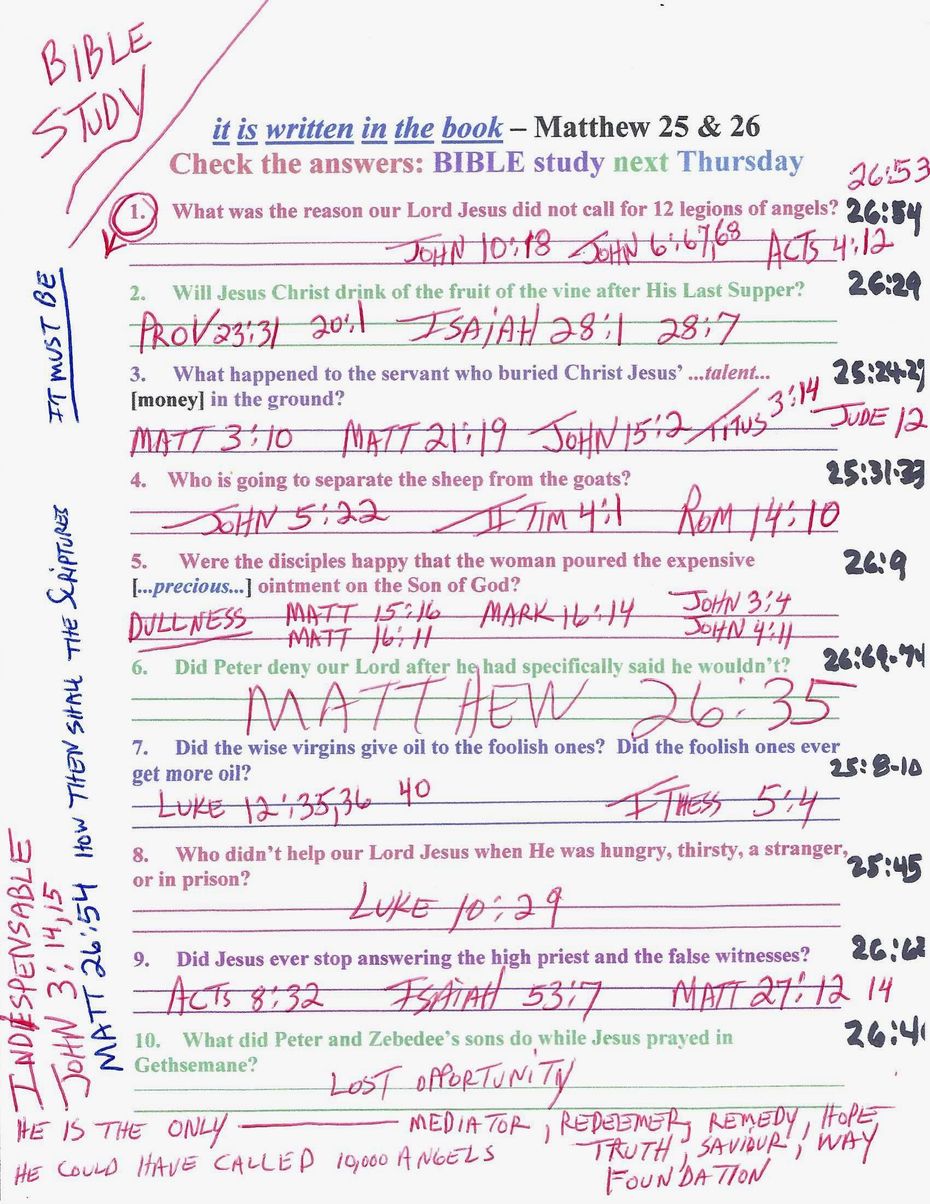 BIBLE
STUDY
it is written in the book – Matthew 25 & 26
Check the answers: BIBLE study next Thursday
26:53
1. What was the reason our Lord Jesus did not call for 12 legions of angels? 26:54
JOHN 10:18 JOHN 6:67,68 ACTS 4:12
2. Will Jesus Christ drink of the fruit of the vine after His Last Supper? 26:29
PROV 23:31 20:1 ISAIAH 28:1 28:7
3. What happened to the servant who buried Christ Jesus' ...talent... 25:24-29
[money] in the ground?
MATT 3:10 MATT 21:19 JOHN 15:2 TITUS 3:14 JUDE 12
4. Who is going to separate the sheep from the goats? 25:31-33
JOHN 5:22 II TIM 4:1 ROM 14:10
5. Were the disciples happy that the woman poured the expensive 26:9
[...precious...] ointment on the Son of God?
DULLNESS MATT 15:16 MARK 16:14 JOHN 3:4
MATT 16:11 JOHN 4:11
6. Did Peter deny our Lord after he had specifically said he wouldn't? 26:69-74
MATTHEW 26:35
7. Did the wise virgins give oil to the foolish ones? Did the foolish ones ever
get more oil? 25:8-10
LUKE 12:35,36 40 I THESS 5:4
8. Who didn't help our Lord Jesus when He was hungry, thirsty, a stranger,
or in prison? 25:45
LUKE 10:29
9. Did Jesus ever stop answering the high priest and the false witnesses?
ACTS 8:32 ISAIAH 53:7 MATT 27:12 14
10. What did Peter and Zebedee's sons do while Jesus prayed in
Gethsemane?
LOST OPPORTUNITY
HE IS THE ONLY MEDIATOR, REDEEMER, REMEDY, HOPE
TRUTH, SAVIOUR, WAY
FOUNDATION
HE COULD HAVE CALLED 10,000 ANGELS
INDISPENSABLE
JOHN 3:14,15
MATT 26:54 HOW THEN SHALL THE SCRIPTURES
IT MUST BE